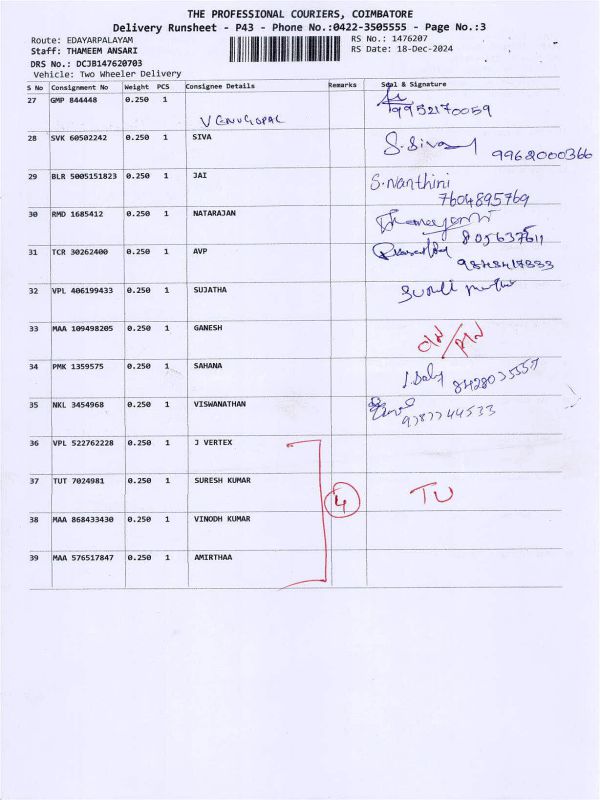 THE PROFESSIONAL COURIERS, COIMBATORE
Delivery Runsheet - P43 - Phone No.:0422-3505555 - Page No.:3
Route: EDAYARPALAYAM RS No.: 1476207
Staff: THAMEEM ANSARI RS Date: 18-Dec-2024
DRS No.: DCJB147620703
Vehicle: Two Wheeler Delivery
S No Consignment No Weight PCS Consignee Details Remarks Seal & Signature
27 GMP 844448 0.250 1
VENUGOPAL 9952170059
28 SVK 60502242 0.250 1 SIVA S. Siva
9962000366
29 BLR 5005151823 0.250 1 JAI S. Nanthini
7604895769
30 RMD 1685412 0.250 1 NATARAJAN
31 TCR 30262400 0.250 1 AVP
32 VPL 406199433 0.250 1 SUJATHA
33 MAA 109498205 0.250 1 GANESH
34 PMK 1359575 0.250 1 SAHANA
35 NKL 3454968 0.250 1 VISWANATHAN
9787744533
36 VPL 522762228 0.250 1 J VERTEX
37 TUT 7024981 0.250 1 SURESH KUMAR 4 TU
38 MAA 868433430 0.250 1 VINODH KUMAR
39 MAA 576517847 0.250 1 AMIRTHAA